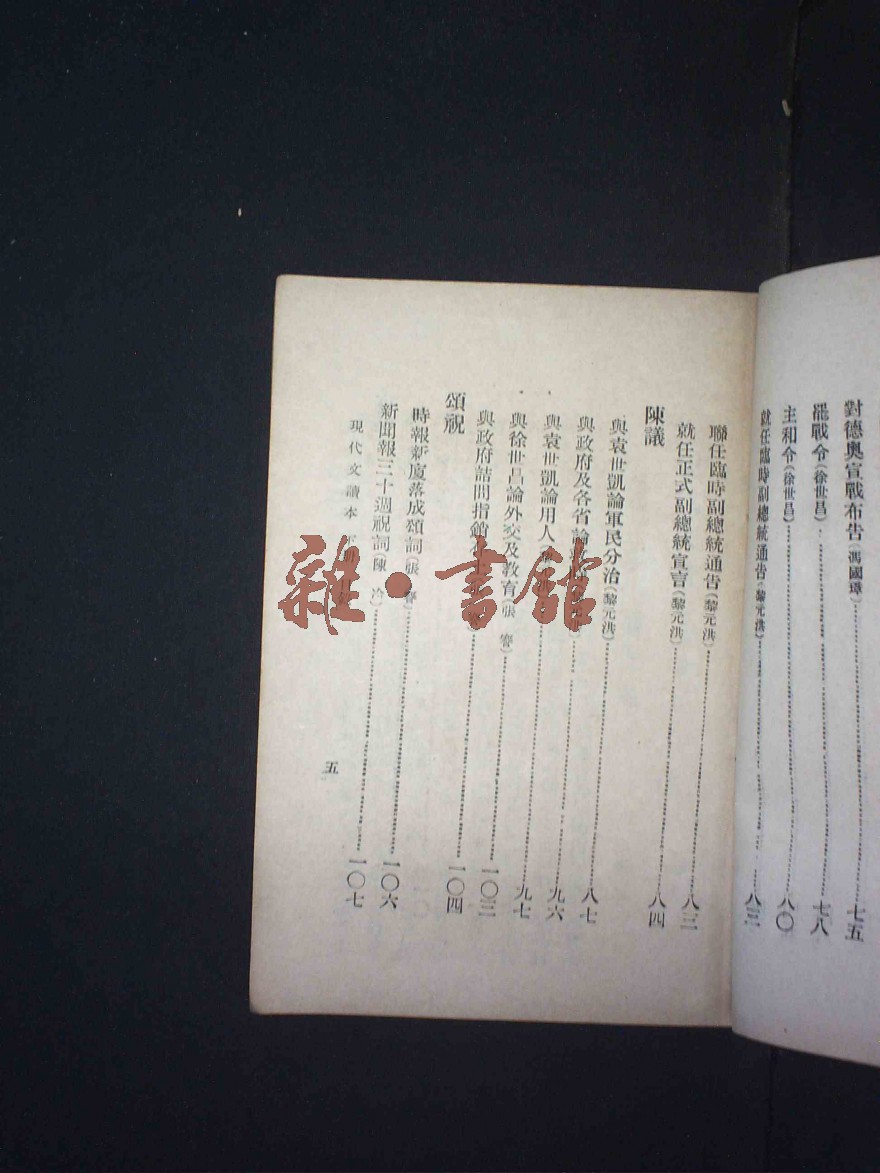 對德奧宣戰布告(馮國璋)……七五
罷戰令(徐世昌)……七八
主和令(徐世昌)……八〇
就任臨時副總統通告(黎元洪)……八二
聯任臨時副總統通告(黎元洪)……八三
就任正式副總統宣言(黎元洪)……八四
陳議
與袁世凱論軍民分治(黎元洪)……八七
與政府及各省論……九六
與袁世凱論用人……九七
與徐世昌論外交及教育(張謇)……一〇三
與政府詰問指銷……一〇四
頌祝
時報新廈落成頌詞(張謇)……一〇六
新聞報三十週祝詞(陳冷)……一〇七
現代文讀本 下冊
五
雜·書館